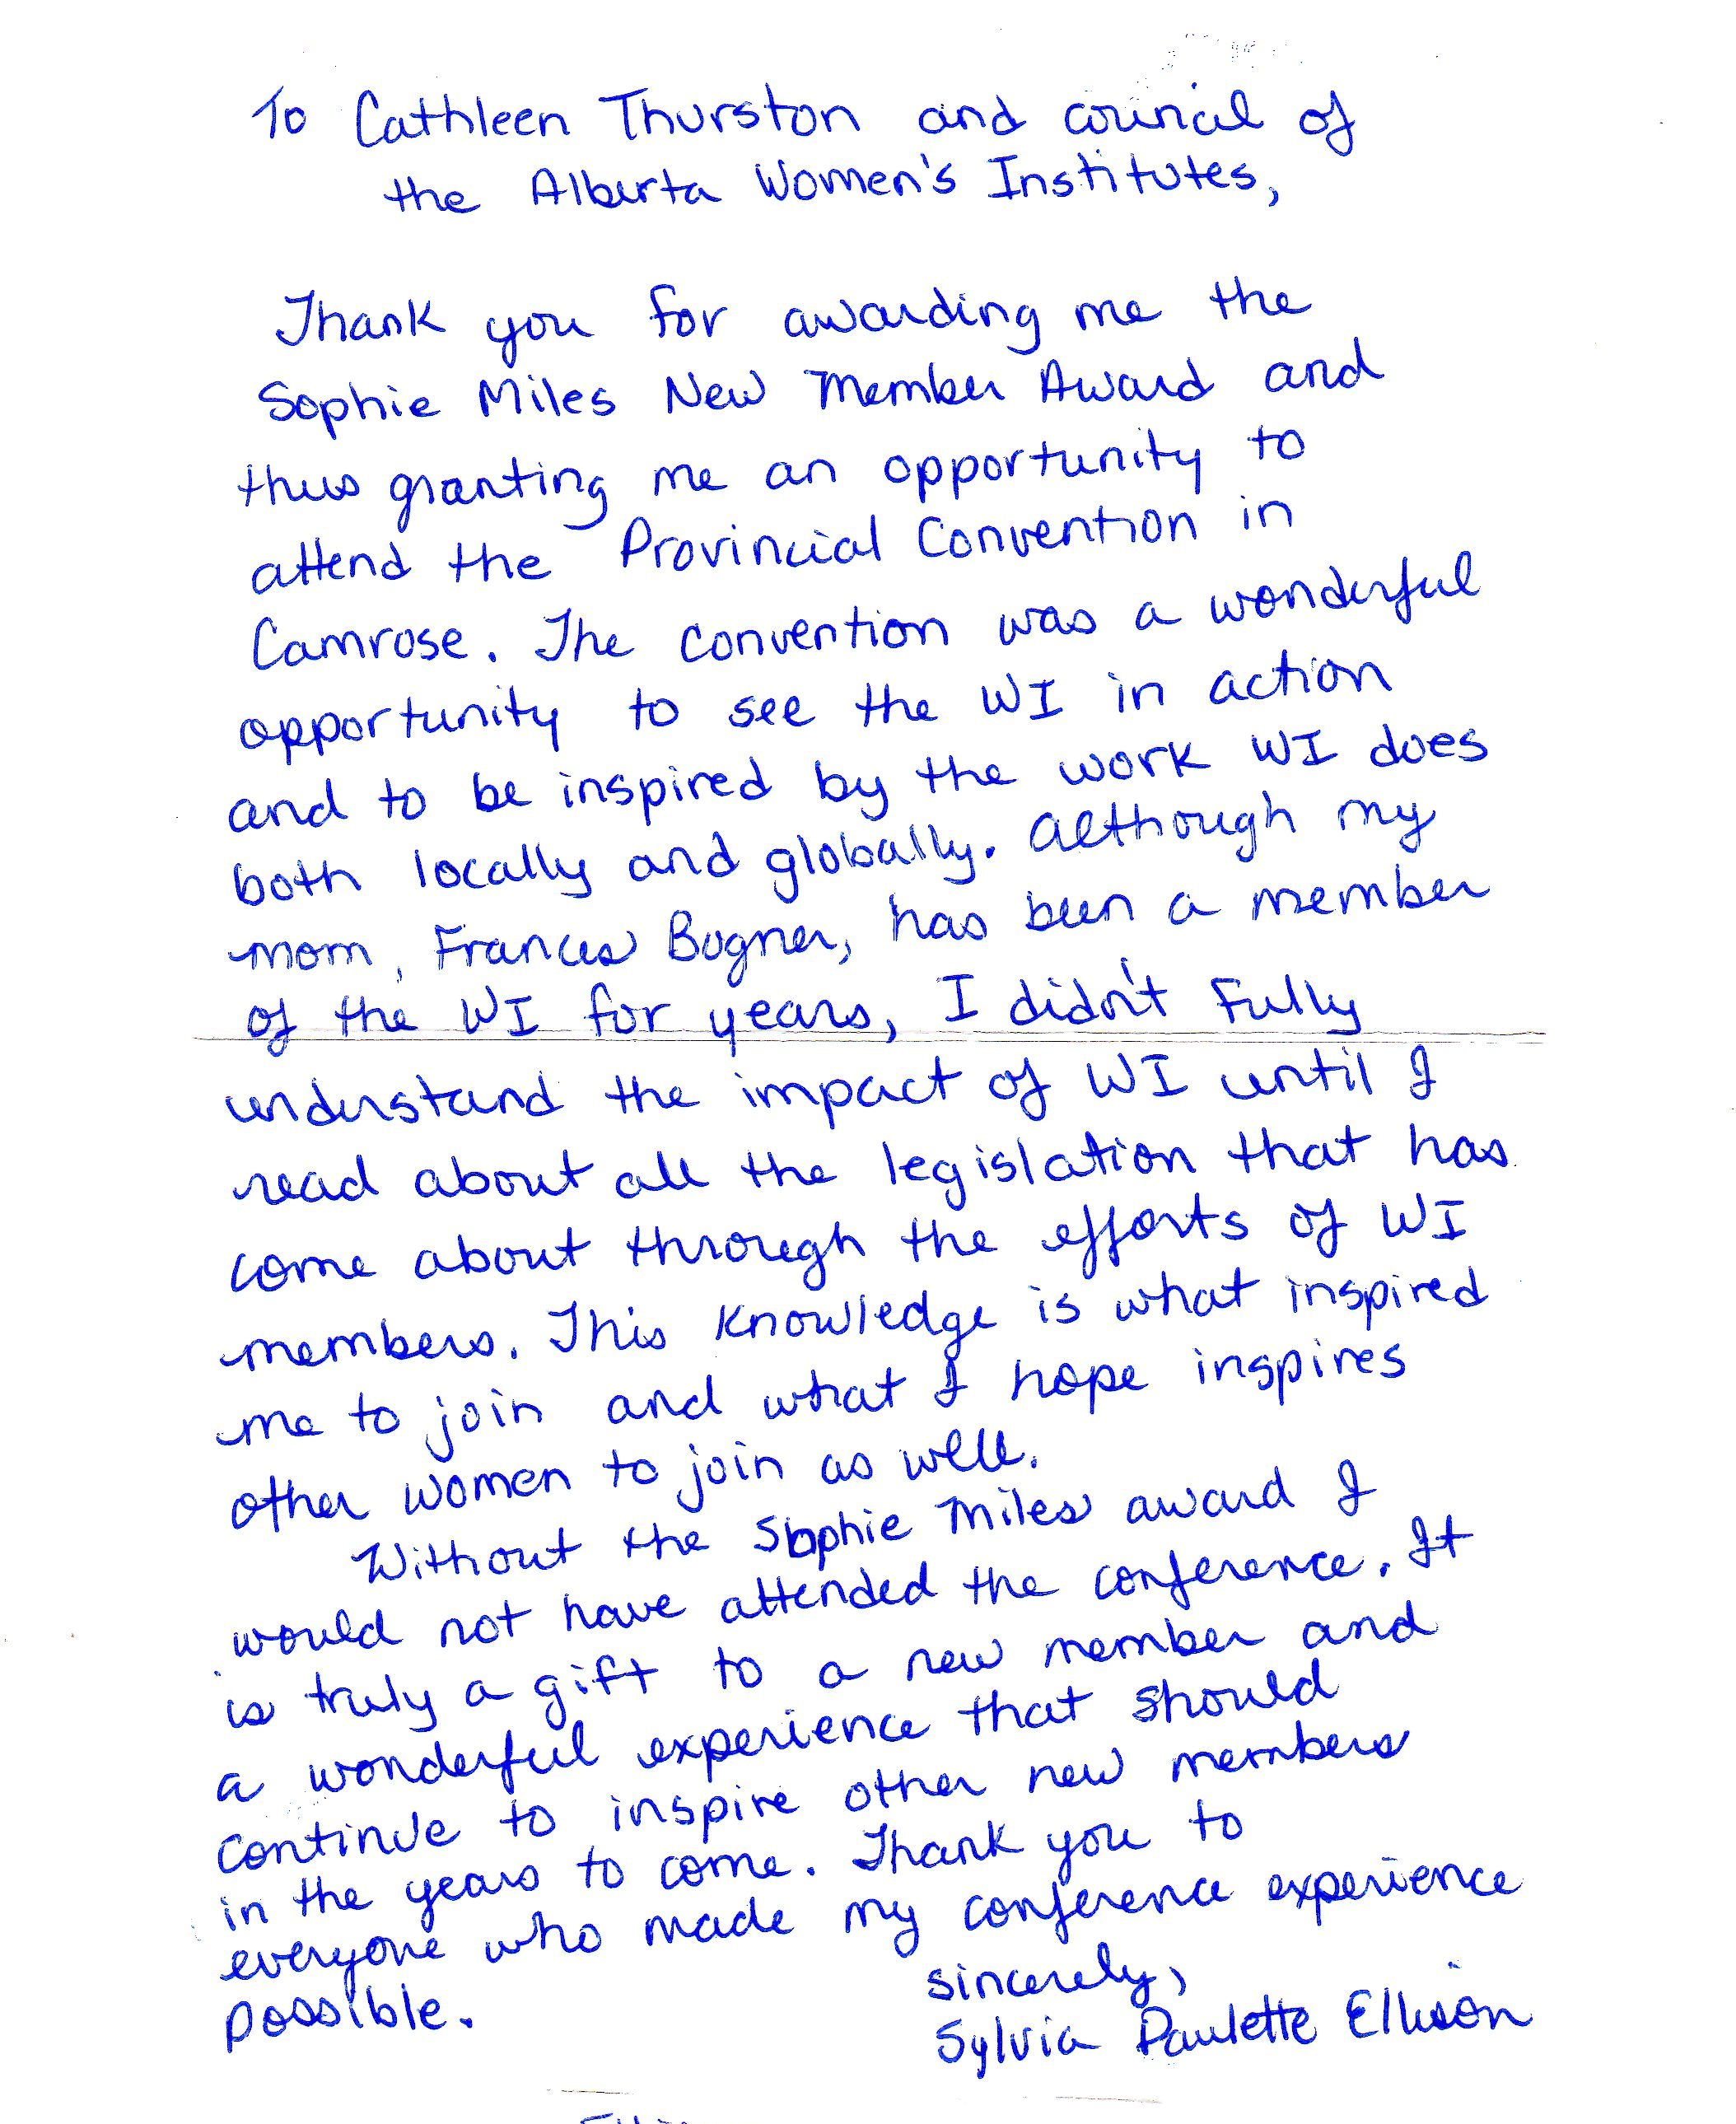 To Cathleen Thurston and council of
the Alberta Women's Institutes,
Thank you for awarding me the
Sophie Miles New Member Award and
thus granting me an opportunity to
attend the Provincial Convention in
Camrose. The convention was a wonderful
opportunity to see the WI in action
and to be inspired by the work WI does
both locally and globally. Although my
mom, Frances Bogner, has been a member
of the WI for years, I didn't fully
understand the impact of WI until I
read about all the legislation that has
come about through the efforts of WI
members. This knowledge is what inspired
me to join and what I hope inspires
other women to join as well.
Without the Sophie Miles award I
would not have attended the conference. It
is truly a gift to a new member and
a wonderful experience that should
continue to inspire other new members
in the years to come. Thank you to
everyone who made my conference experience
possible.
sincerely,
Sylvia Paulette Ellison